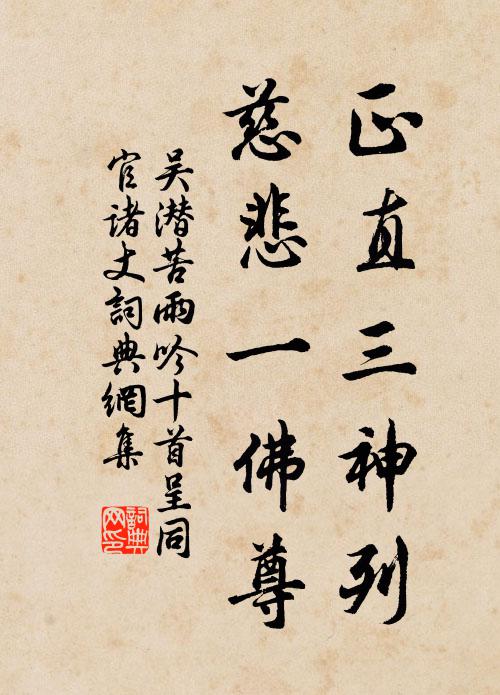 正直三神列
慈悲一佛尊
吴潛苦雨吟十首呈同
官诸丈詞典網集
詞典网印